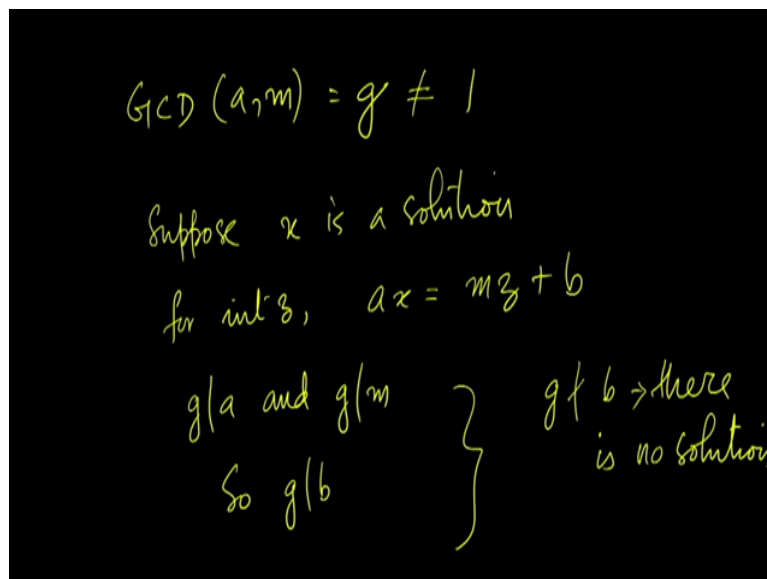 GCD (a, m) = g ≠ 1
Suppose x is a solution
for int z, ax = mz + b
g|a and g|m
So g|b
g ∤ b → there
is no solution